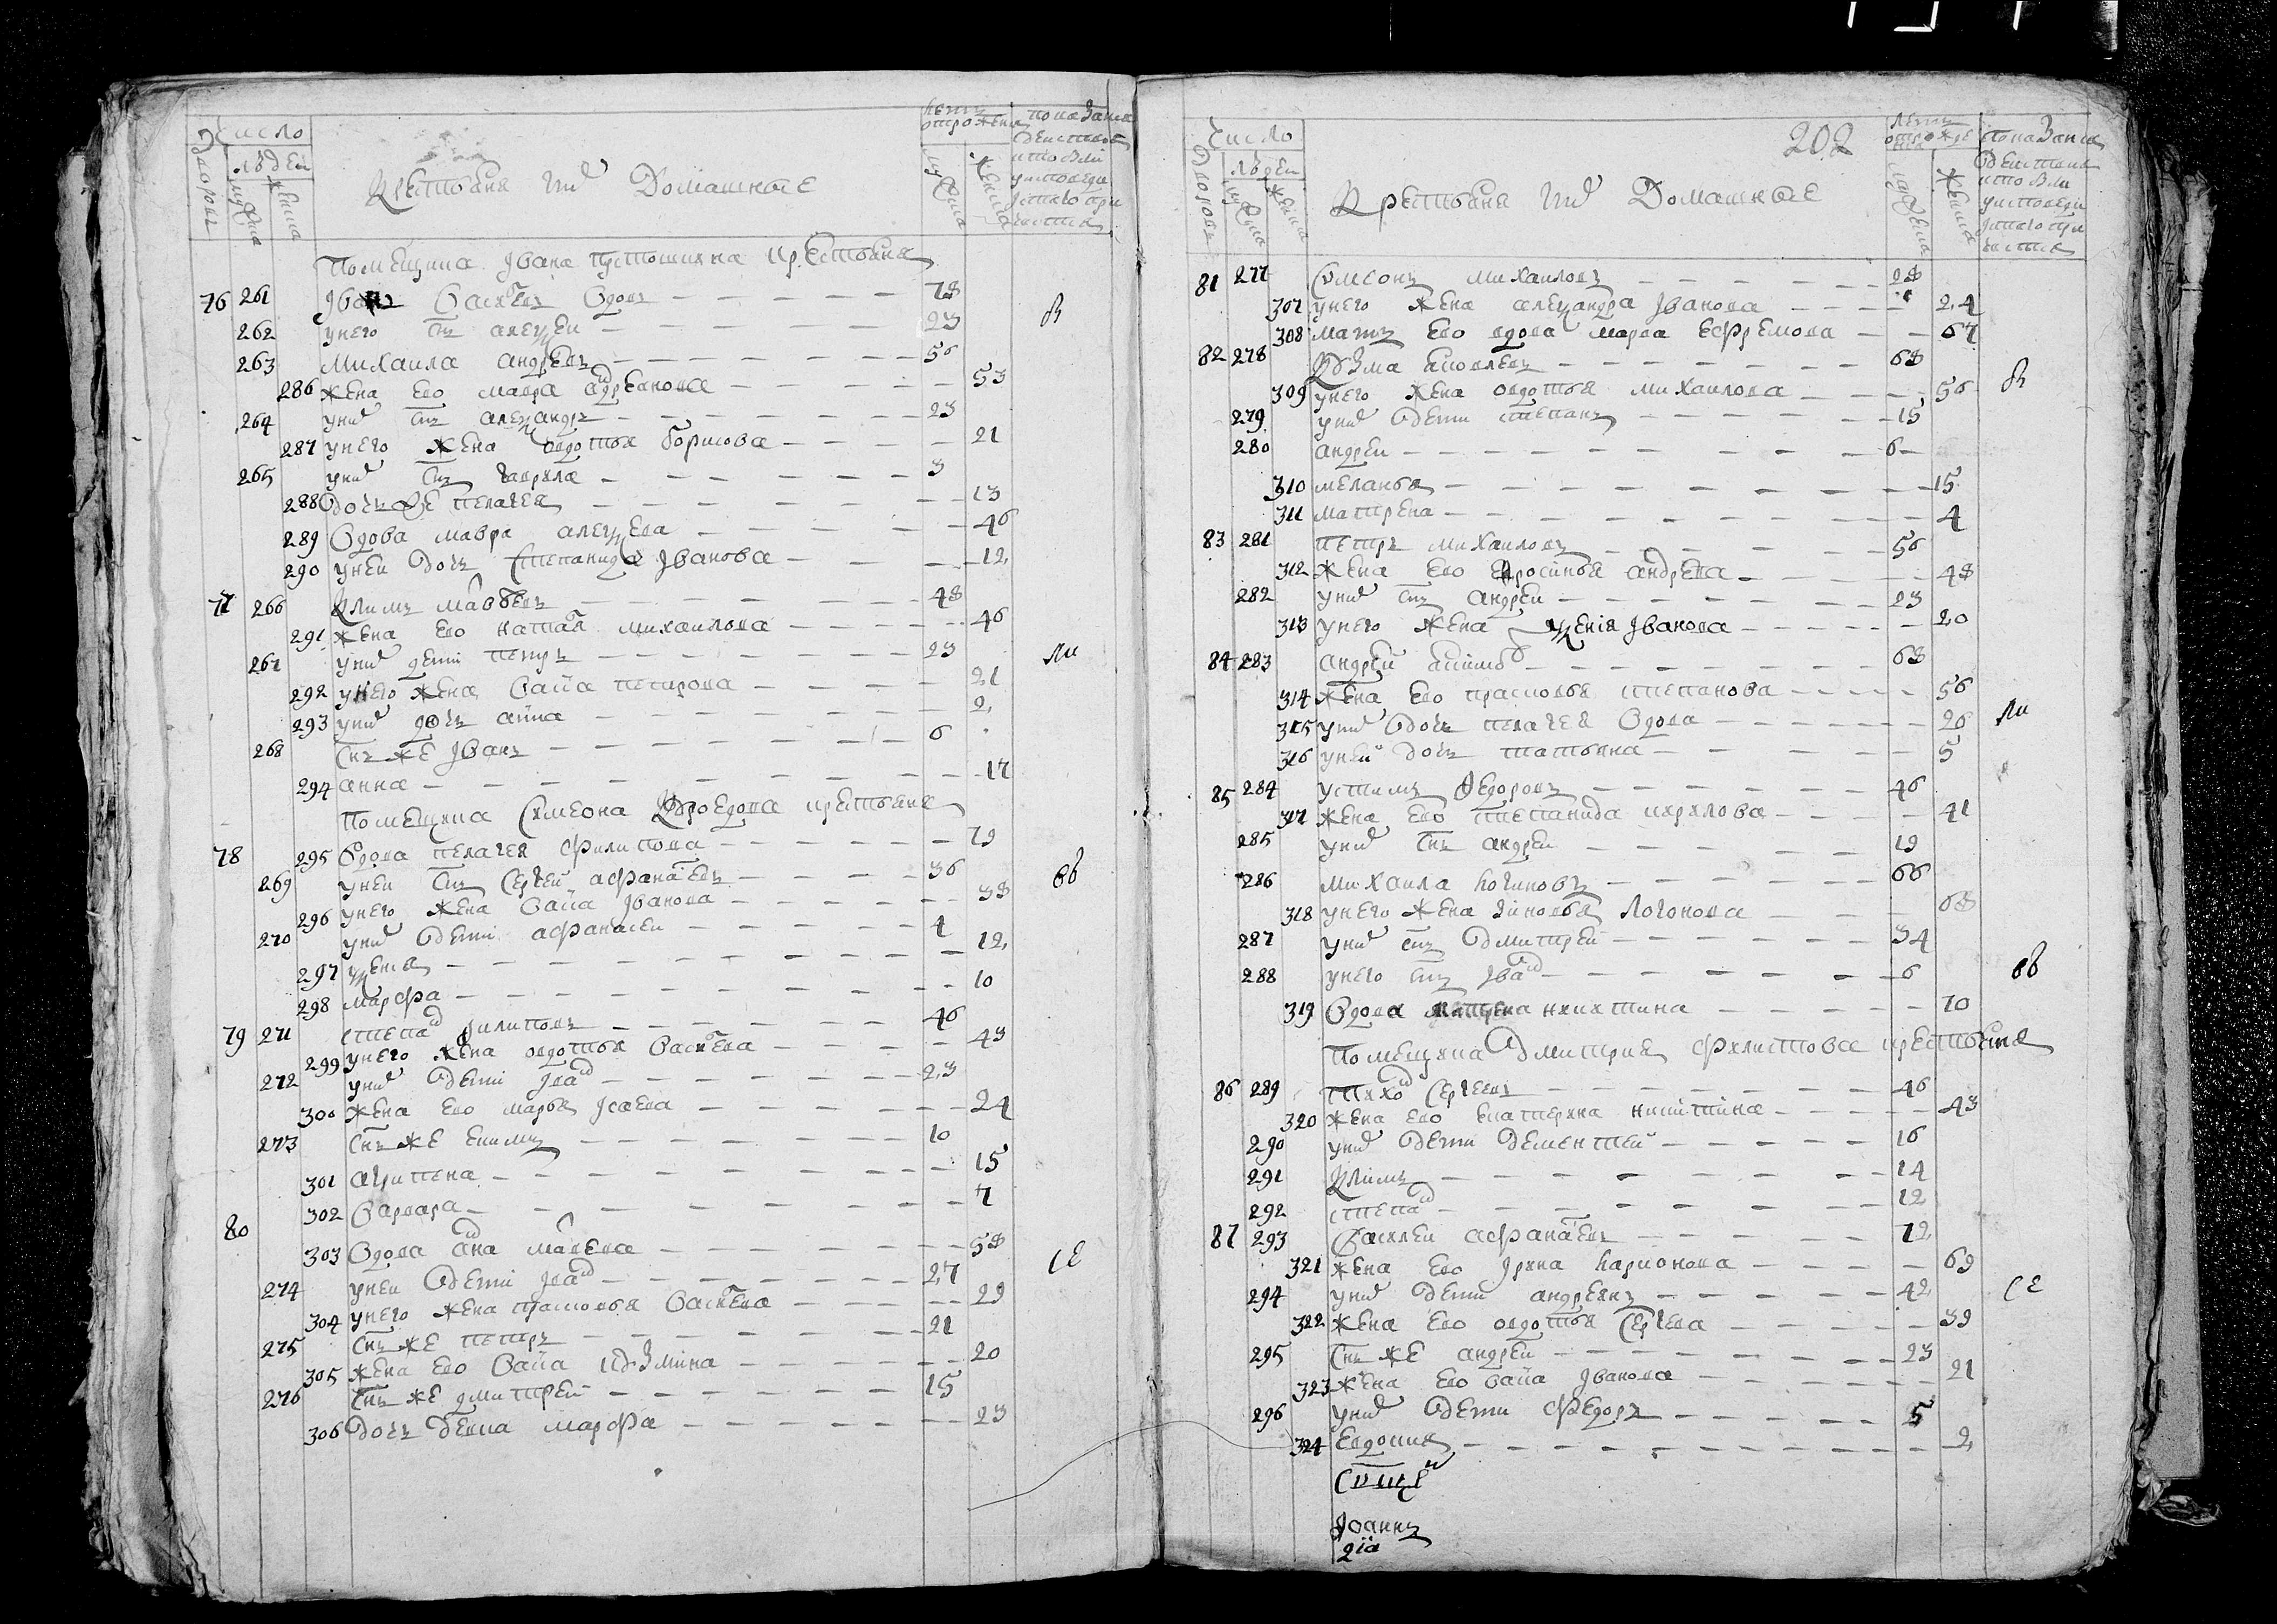 Число
Дворовъ
людей
мужска
женска
Крестьяня ихъ Домашные
летъ
отрожения
мужска
женска
показание
действа
кто был
уисповеди
Помещика Iвана крестьяня
76 261 Iванъ Васильевъ вдовъ 78
262 унего снъ алеѯеи 23
263 Михаила андреевъ 56
286 жена ево мавра адреанова 53
264 унихъ снъ алеѯандръ 23
287 унего жена овдотья борисова 21
265 унихъ снъ гаврила 3
288 дочь же пелагея 13
289 Вдова мавра алеѯеева 46
290 унеи дочь степанида Iванова 12
77 266 Климъ матвеевъ 48
291 жена ево наталя михаилова 46
267 унихъ дети петръ 23
292 унего жена васса петрова 21
293 унихъ дочь анна 2
268 снъ же Iванъ 6
294 анна 17
Помещика Симеона крестьяня
78 295 вдова пелагея филипова 79
269 унеи снъ Сергеи афанасевъ 36
296 унего жена васса Iванова 38
270 унихъ дети афанасеи 4
297 ѯения 12
298 марфа 10
79 271 степанъ филиповъ 46
299 унего жена овдотья васильева 43
272 унихъ дети Iванъ 23
300 жена ево марья Iсаева 24
273 снъ же екимъ 10
301 акилена 15
302 варвара 7
80
303 Вдова анна матвеева 58
274 унеи дети Iванъ 27
304 унего жена прасковья васильева 29
275 снъ же петръ 21
305 жена ево васса кузмина 20
276 снъ же дмитреи 15
306 дочь девка марфа 23
202
Число
Дворовъ
людей
мужска
женска
Крестьяня ихъ Домашные
летъ
мужска
женска
показание
действа
кто был
уисповеди
81 277 Симеонъ михаиловъ 28
307 унего жена алеѯандра Iванова 24
308 мать ево вдова марва ефремова 67
82 278 Кузма яковлевъ 68
309 унего жена овдотья михаилова 56
279 унихъ дети степанъ 15
280 андреи 6
310 меланья 15
311 матрена 4
83 281 петръ михаиловъ 56
312 жена ево ефросинья андреева 48
282 унихъ снъ андреи 23
313 унего жена ѯения Iванова 20
84 283 андреи 68
314 жена ево прасковья степанова 56
315 унихъ дочь пелагея вдова 26
316 унеи дочь татьяна 5
85 284 устимъ федоровъ 46
317 жена ево степанида кирилова 41
285 унихъ снъ андреи 19
286 михаила логиновъ 66
318 унего жена зиновья логонова 68
287 унихъ снъ дмитреи 34
288 унего снъ Iванъ 6
319 вдова матрена никитина 70
Помещика Дмитрия филистова крестьяня
86 289 тихонъ Сергеевъ 46
320 жена ево екатерина никитина 43
290 унихъ дети дементеи 16
291 Климъ 14
292 степанъ 12
87 293 Василеи афанасевъ 72
321 жена ево Iрина ларионова 69
294 унихъ дети андреянъ 42
322 жена ево овдотья Сергеева 39
295 снъ же андреи 23
323 жена ево васса Iванова 21
296 унихъ дети федоръ 5
324 Евдокия 2
Iоаннъ